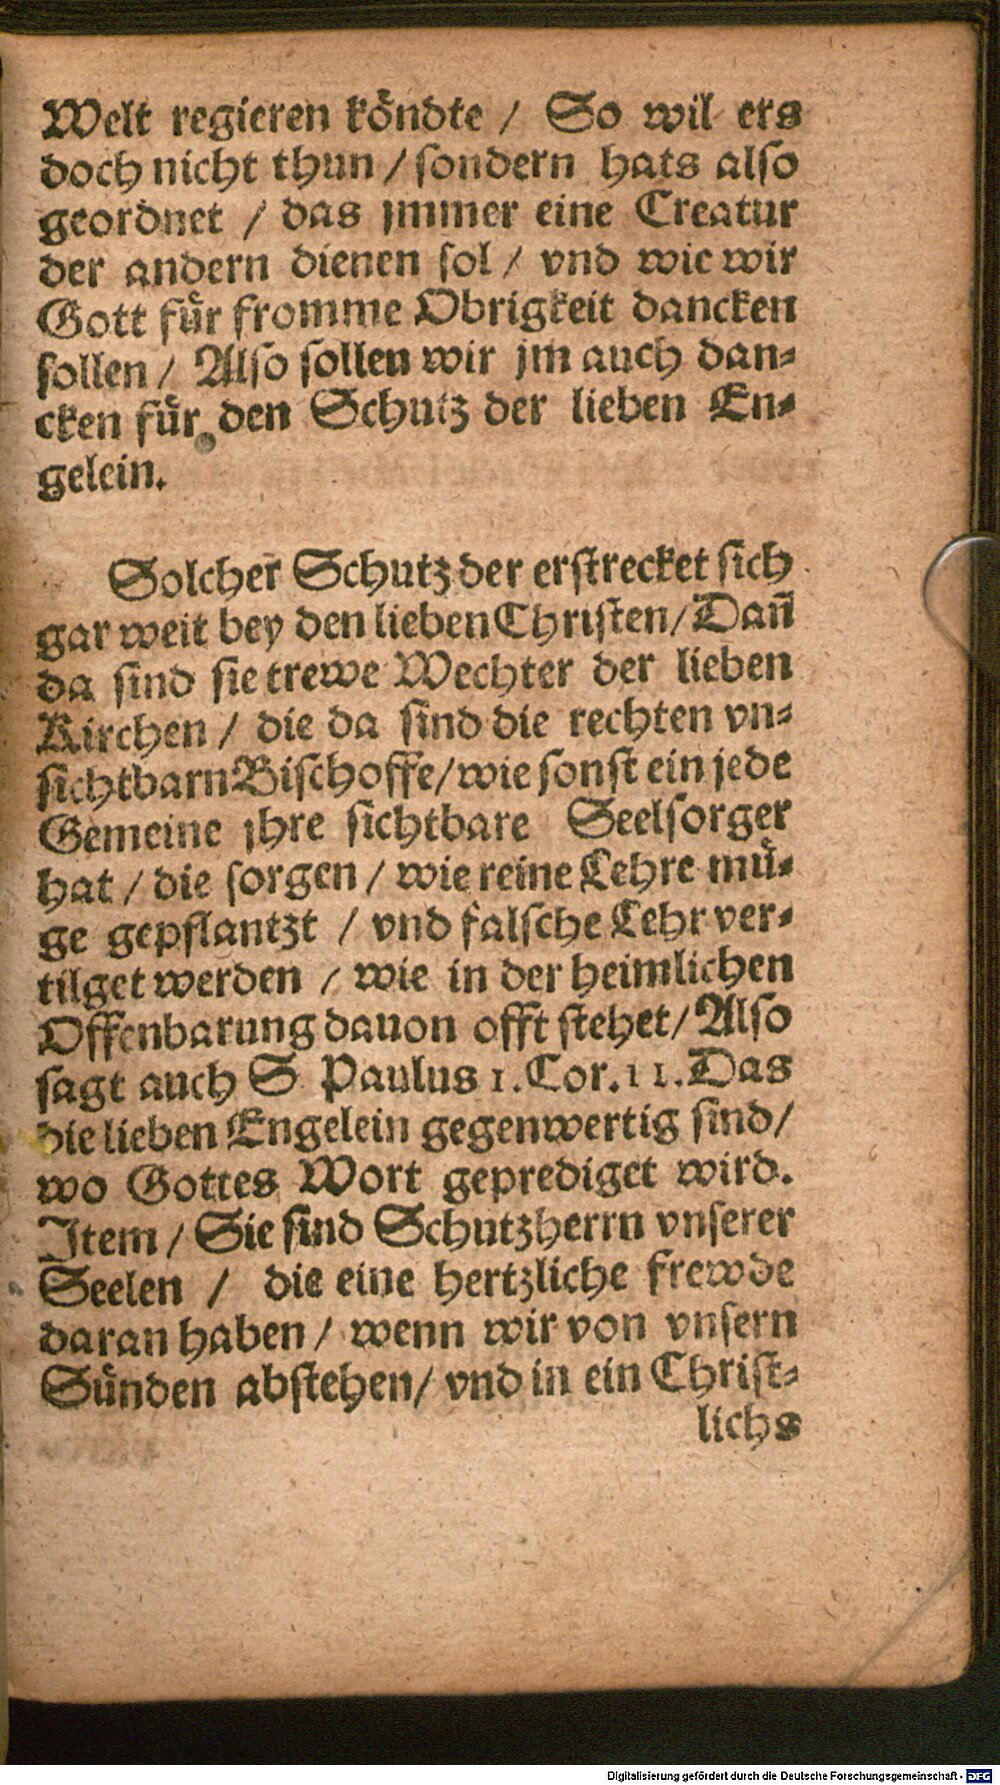 Welt regieren köndte / So wil ers
doch nicht thun / sondern hats also
geordnet / das jmmer eine Creatur
der andern dienen sol / vnd wie wir
Gott für fromme Obrigkeit dancken
sollen / Also sollen wir jm auch dan-
cken für den Schutz der lieben En-
gelein.
Solcher Schutz der erstrecket sich
gar weit bey den lieben Christen / Dañ
da sind sie trewe Wechter der lieben
Kirchen / die da sind die rechten vn-
sichtbarn Bischoffe / wie sonst ein jede
Gemeine jhre sichtbare Seelsorger
hat / die sorgen / wie reine Lehre mü-
ge gepflantzt / vnd falsche Lehr ver-
tilget werden / wie in der heimlichen
Offenbarung dauon offt stehet / Also
sagt auch S Paulus 1. Cor. 11. Das
die lieben Engelein gegenwertig sind /
wo Gottes Wort geprediget wird.
Item / Sie sind Schutzherrn vnserer
Seelen / die eine hertzliche frewde
daran haben / wenn wir von vnsern
Sünden abstehen / vnd in ein Christ-
lichs
Digitalisierung gefördert durch die Deutsche Forschungsgemeinschaft - DFG